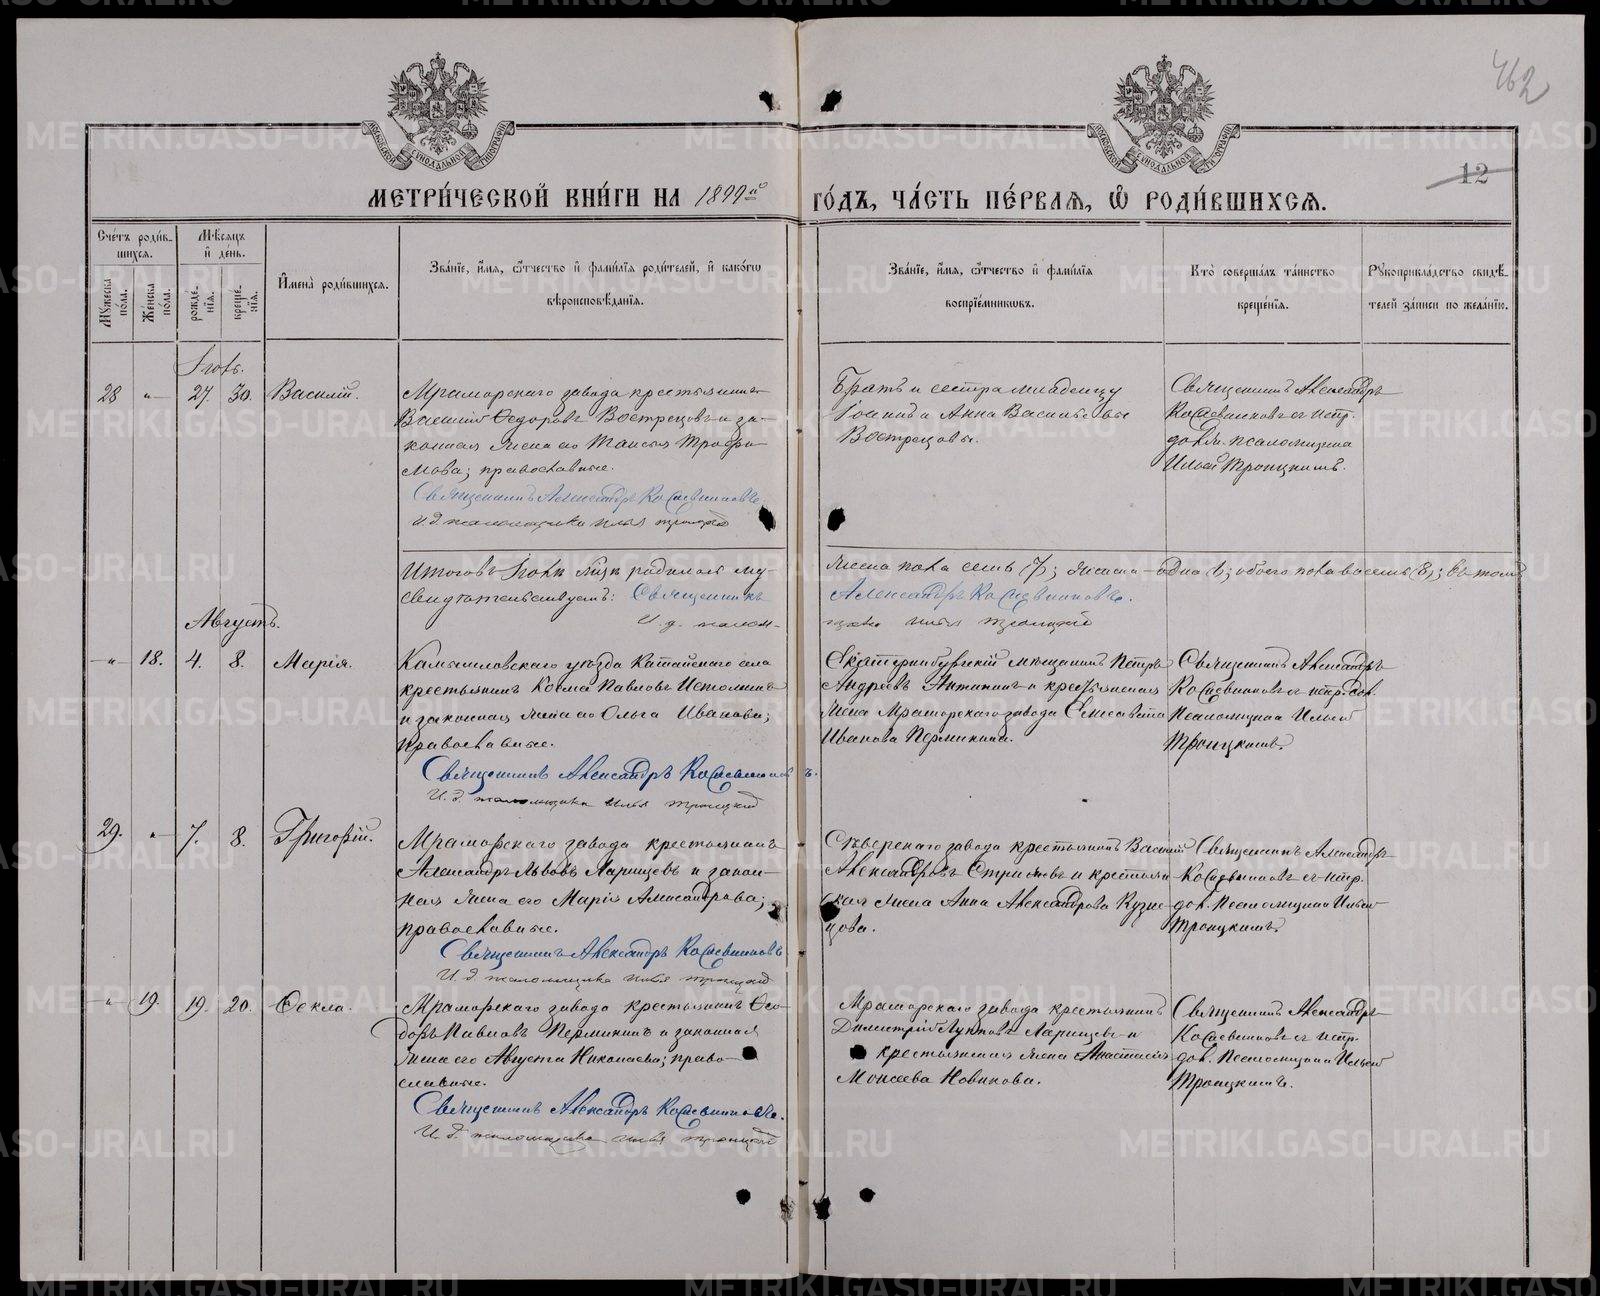 462
12
МЕТРИ́ЧЕСКОЙ КНИ́ГИ НА 1899й ГО́ДЪ, ЧА́СТЬ ПЕ́РВАѦ, Ѡ РОДИ́ВШИХСѦ.
Сче́тъ роди́в-
шихсѧ.
Мꙋжеска по́ла.
Же́нска по́ла.
Мѣ́сѧцъ
и҆ де́нь.
рожде́-
нїѧ.
креще́-
нїѧ.
И҆мена̀ роди́вшихсѧ.
Зва́нїе, и҆́мѧ, ѻ҆́тчество и҆ фами́лїѧ роди́телей, и҆ како́гѡ
вѣроисповѣ́данїѧ.
Зва́нїе, и҆́мѧ, ѻ҆́тчество и҆ фами́лїѧ
воспрїе́мникѡвъ.
Кто̀ соверша́лъ та́инство
креще́нїѧ.
Рꙋкоприкла́дство свидѣ́-
телей за́писи по жела́нїю.
Іюль.
28 „ 27. 30. Василій.
Мраморскаго завода крестьянинъ
Василій Ѳедоровъ Вострецовъ и за-
конная жена его Таисья Трофи-
мова; православные.
Священникъ Александръ
И. д. псаломщика Илья Троицкій
Братъ и сестра младенцу
Іоаннъ и Анна Васильевы
Вострецовы.
Священникъ Александръ
псаломщика
Ильей Троицкимъ.
Итого въ Іюлѣ м-цѣ родилось му-
жеска пола семь (7); женска - одна (1); обоего пола восемь (8); въ томъ
свидѣтельствуемъ: Священникъ
Александръ
И. д. псалом-
щика Илья Троицкій
Августъ.
„ 18. 4. 8. Марія.
Камышловскаго уѣзда Катайскаго села
крестьянинъ Косма Павловъ Истоминъ
и законная жена его Ольга Иванова;
православные.
Священникъ Александръ
И. д. псаломщика Илья Троицкій
Екатеринбургскій мѣщанинъ Петръ
Андреевъ и крестьянская
жена Мраморскаго завода Елисавета
Иванова Пермикина.
Священникъ Александръ
Псаломщика Ильей
Троицкимъ.
29. „ 7. 8. Григорій.
Мраморскаго завода крестьянинъ
Александръ Львовъ Ларинцевъ и закон-
ная жена его Марія Александрова;
православные.
Священникъ Александръ
И. д. псаломщика Илья Троицкій
завода крестьянинъ Василій
Александровъ и крестьян-
ская жена Анна Александрова Кузне-
цова.
Священникъ Александръ
Псаломщика Ильей
Троицкимъ.
„ 19. 19. 20. Ѳекла.
Мраморскаго завода крестьянинъ Ѳео-
доръ Павловъ Пермикинъ и законная
жена его Августа Николаева; право-
славные.
Священникъ Александръ
И. д. псаломщика Илья Троицкій
Мраморскаго завода крестьянинъ
Димитрій Ларинцевъ и
крестьянская жена Анастасія
Моисеева Новикова.
Священникъ Александръ
Псаломщика Ильей
Троицкимъ.
METRIKI.GASO-URAL.RU